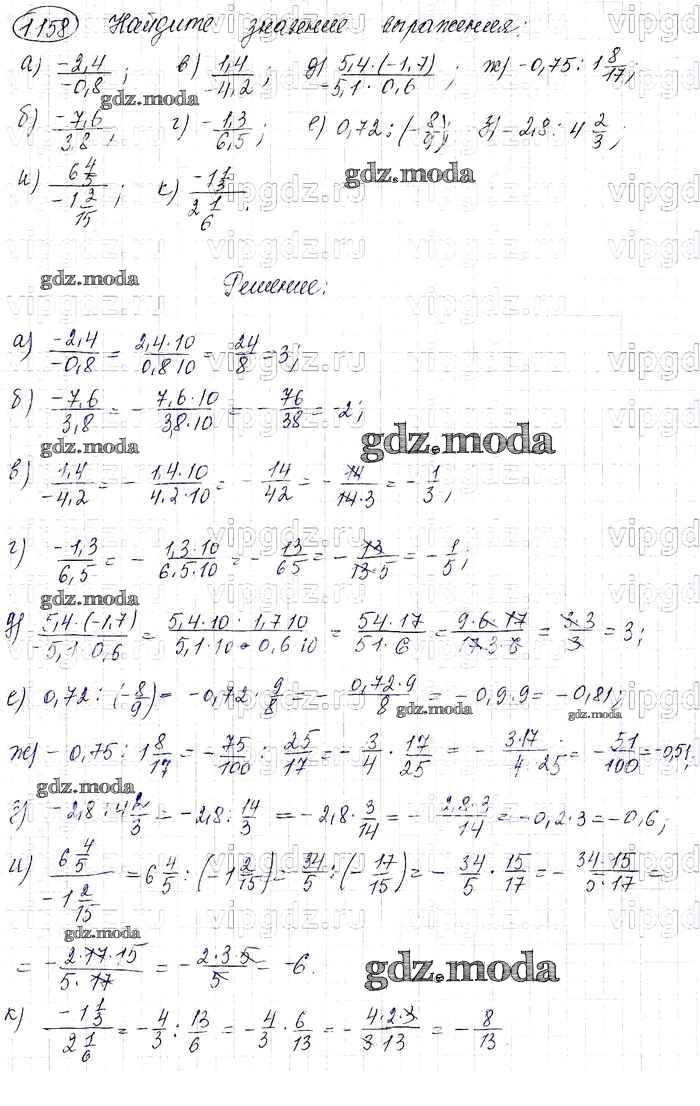 1158 Найдите значение выражения:
а) -2,4/-0,8; в) 1,4/-4,2; д) 5,4·(-1,7)/-5,1·0,6; ж) -0,75 : 1 8/17;
gdz.moda
б) -7,6/3,8; г) -1,3/6,5; е) 0,72 : (-8/9); з) -2,8 : 4 2/3;
и) 6 4/5/-1 2/15; к) -1 1/3/2 1/6.
gdz.moda
gdz.moda
Решение:
а) -2,4/-0,8 = 2,4·10/0,8·10 = 24/8 = 3;
б) -7,6/3,8 = - 7,6·10/3,8·10 = - 76/38 = -2;
gdz.moda
gdz.moda
в) 1,4/-4,2 = - 1,4·10/4,2·10 = - 14/42 = - 14/14·3 = - 1/3;
г) -1,3/6,5 = - 1,3·10/6,5·10 = - 13/65 = - 13/13·5 = - 1/5;
gdz.moda
д) 5,4·(-1,7)/-5,1·0,6 = 5,4·10·1,7·10/5,1·10·0,6·10 = 54·17/51·6 = 9·6·17/17·3·6 = 3·3/3 = 3;
е) 0,72 : (-8/9) = -0,72 · 9/8 = - 0,72·9/8 = -0,9·9 = -0,81;
gdz.moda
gdz.moda
ж) -0,75 : 1 8/17 = - 75/100 : 25/17 = - 3/4 · 17/25 = - 3·17/4·25 = - 51/100 = -0,51;
gdz.moda
з) -2,8 : 4 2/3 = -2,8 : 14/3 = -2,8 · 3/14 = - 2,8·3/14 = -0,2·3 = -0,6;
и) 6 4/5/-1 2/15 = 6 4/5 : (-1 2/15) = 34/5 : (- 17/15) = - 34/5 · 15/17 = - 34·15/5·17 =
gdz.moda
= - 2·17·15/5·17 = - 2·3·5/5 = -6.
gdz.moda
к) -1 1/3/2 1/6 = - 4/3 : 13/6 = - 4/3 · 6/13 = - 4·2·3/3·13 = - 8/13.
vipgdz.ru